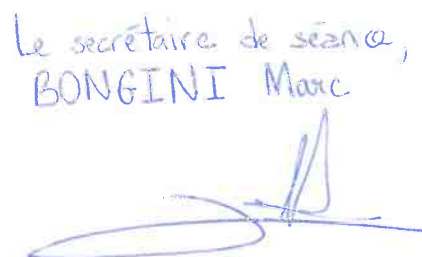 Le secrétaire de séance,
BONGINI Marc